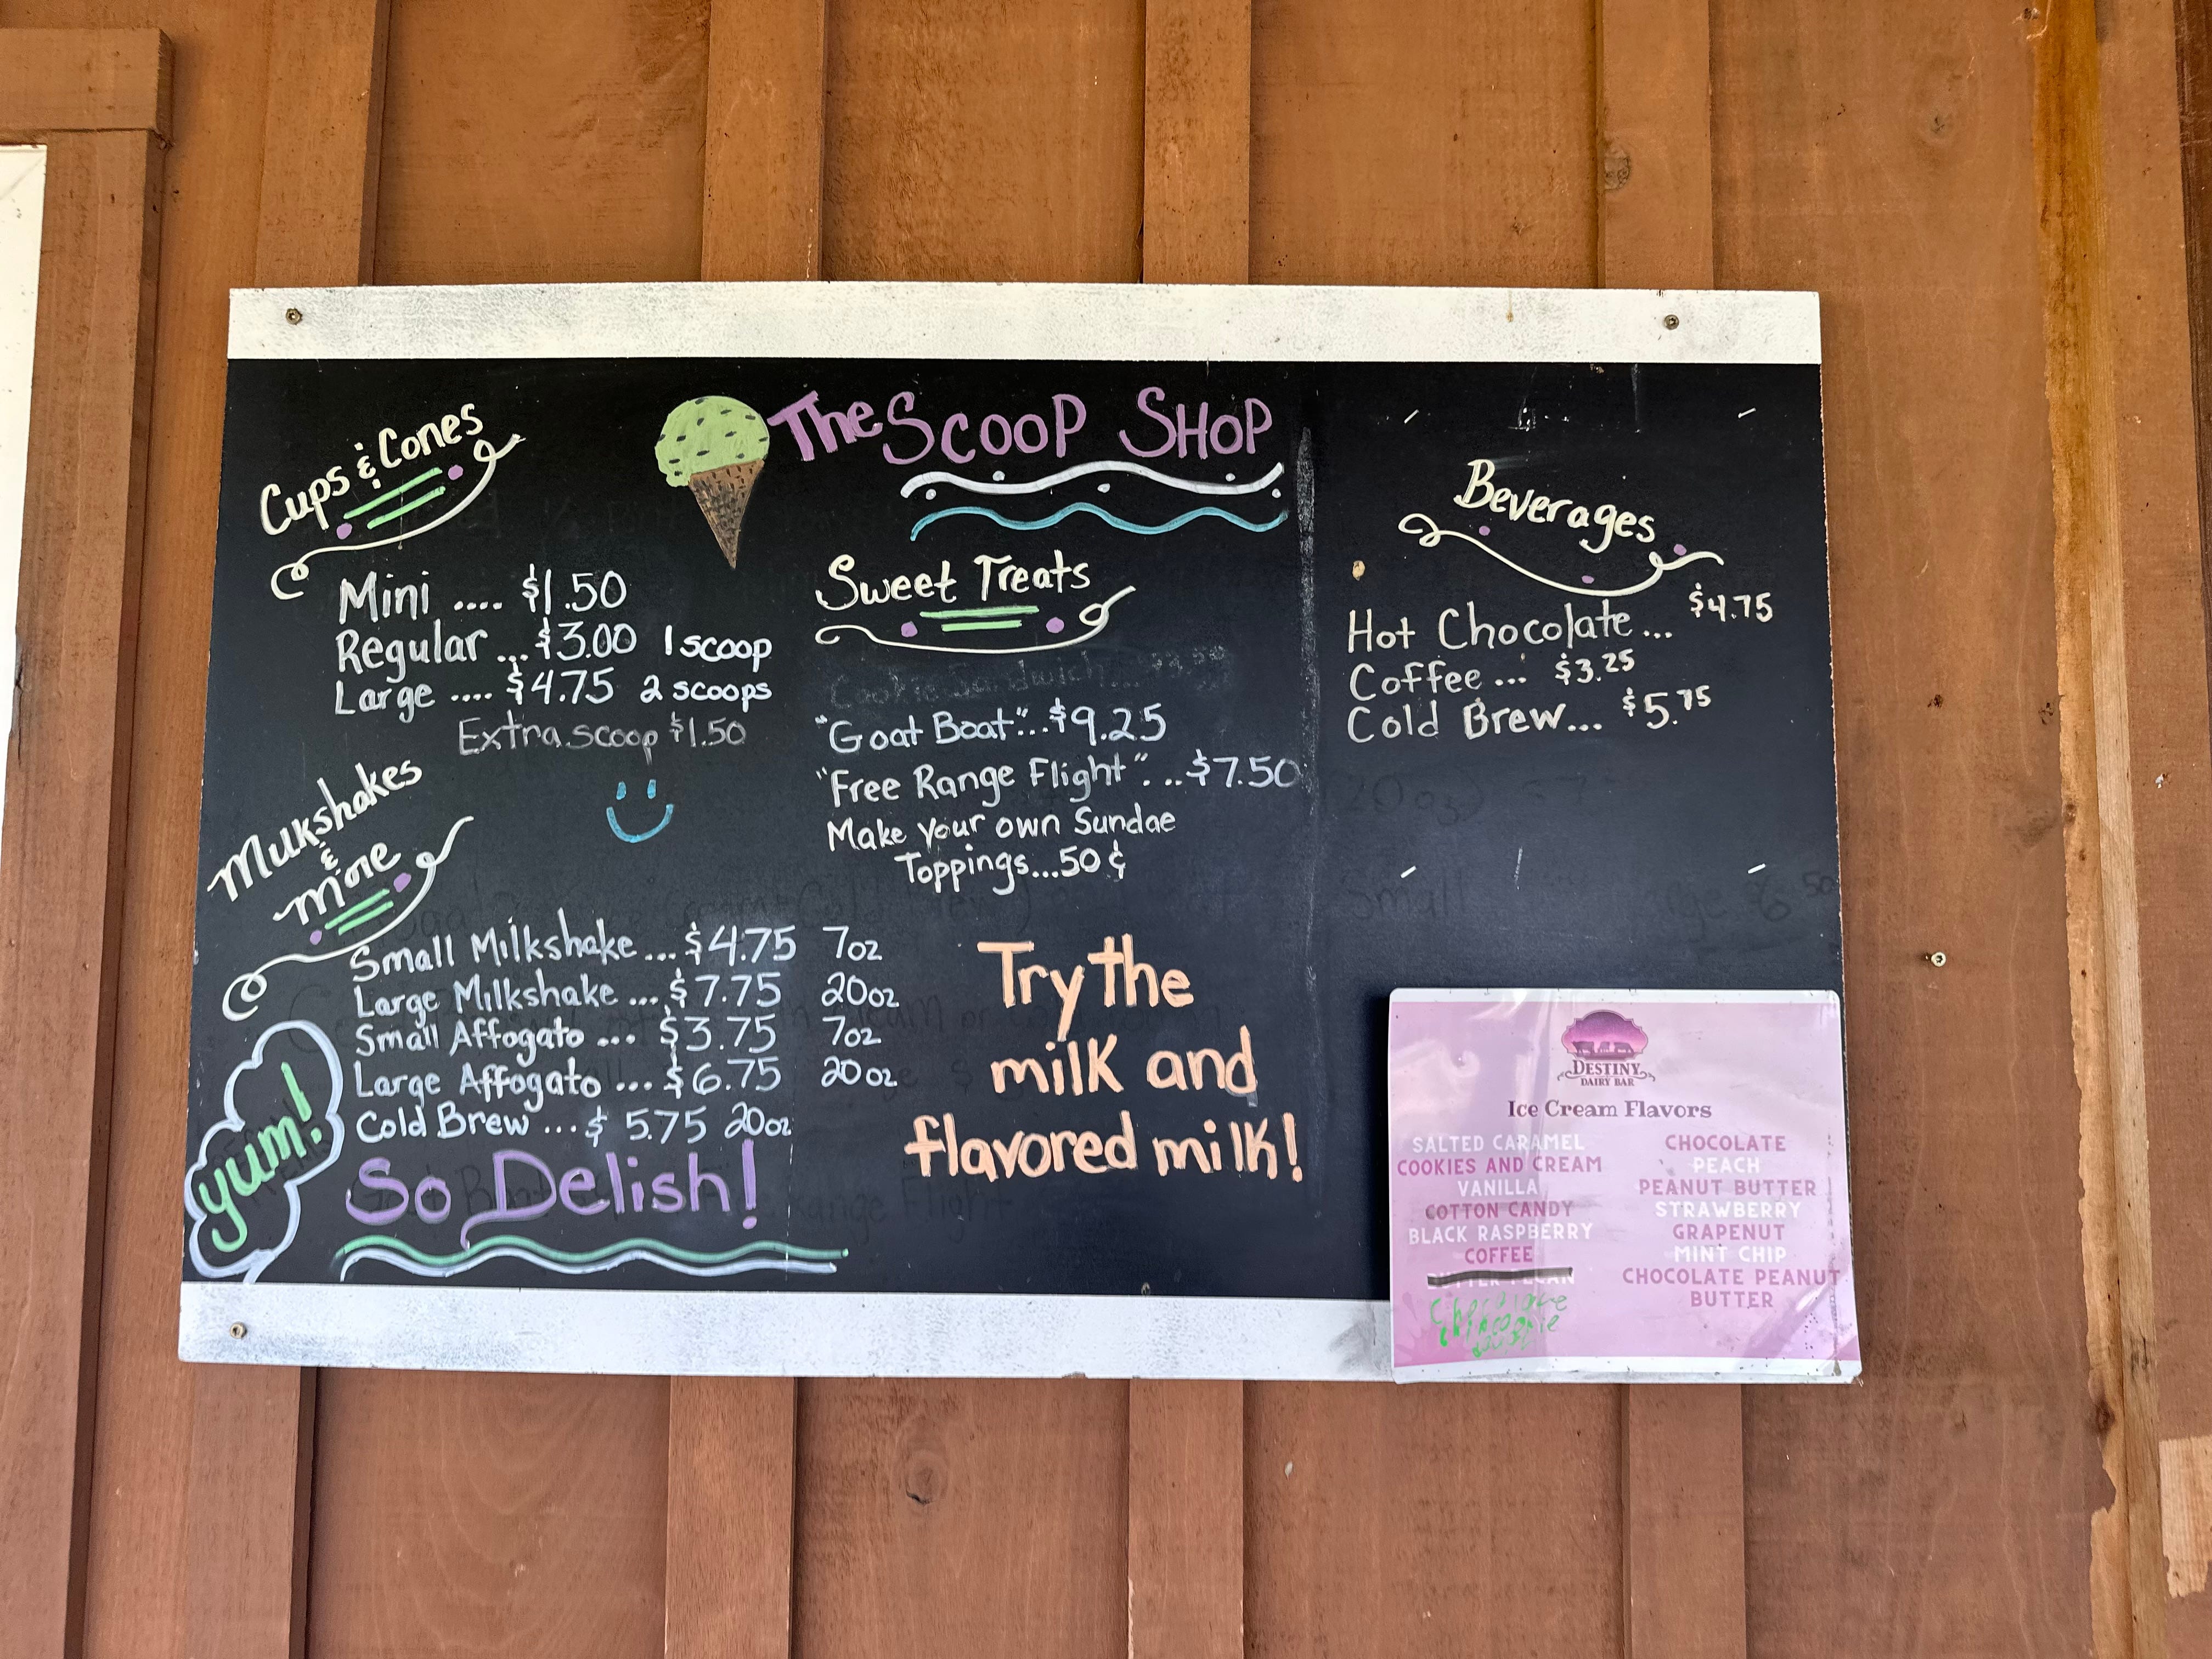 The Scoop Shop
Cups & Cones
Mini .... $1.50
Regular ... $3.00 1 scoop
Large .... $4.75 2 scoops
Extra scoop $1.50
Milkshakes
&
more
Small Milkshake ... $4.75 7oz
Large Milkshake ... $7.75 20oz
Small Affogato ... $3.75 7oz
Large Affogato ... $6.75 20oz
Cold Brew ... $5.75 20oz
yum!
So Delish!
Sweet Treats
Cookie Sandwich
"Goat Boat"... $9.25
"Free Range Flight"... $7.50
Make your own Sundae
Toppings...50¢
Try the
milk and
flavored milk!
Beverages
Hot Chocolate... $4.75
Coffee... $3.25
Cold Brew... $5.75
Small
DESTINY
DAIRY BAR
Ice Cream Flavors
SALTED CARAMEL
COOKIES AND CREAM
VANILLA
COTTON CANDY
BLACK RASPBERRY
COFFEE
CHOCOLATE
PEACH
PEANUT BUTTER
STRAWBERRY
GRAPENUT
MINT CHIP
CHOCOLATE PEANUT
BUTTER